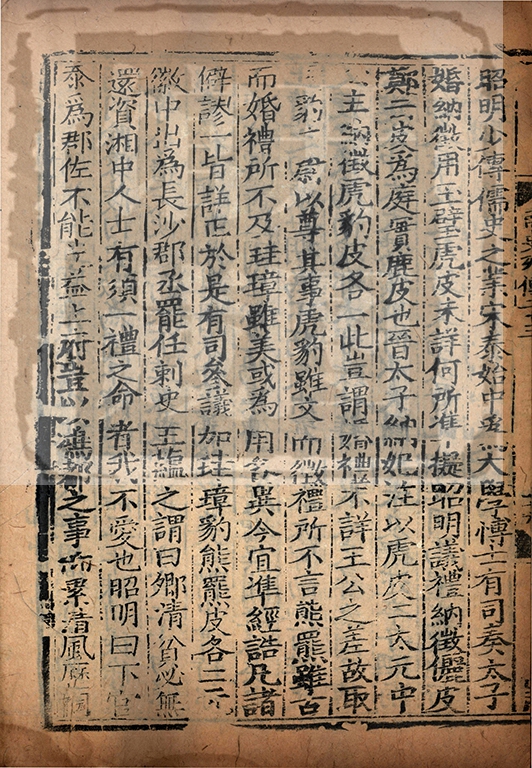 昭明少傳儒史之業宋泰始中 太學博士有司奏太子
婚納徵用玉璧虎皮未詳何所准擬昭明議禮納徵儷皮
鄭云皮為庭實鹿皮也晉太子納妃注以虎皮二太元中
主納徵虎豹皮各一此豈謂婚禮不詳王公之差故取
豹文蔚以尊其事虎豹雖文而徵禮所不言熊羆雖古
而婚禮所不及珪璋雖美或為用各異今宜準經誥凡諸
僻謬一皆詳正於是有司參議加珪璋豹熊羆皮各二元
徽中出為長沙郡丞罷任刺史王蘊之謂曰卿清貧必無
還資湘中人士有須一禮之命者我不愛也昭明曰下官
忝為郡佐不能光益上府豈以鴻都之事仰累清風歷祠